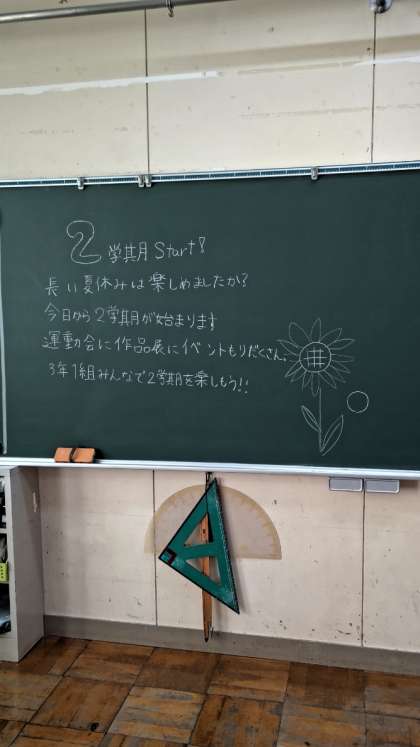 2学期 Start!
長い夏休みは楽しめましたか?
今日から2学期が始まります
運動会に作品展にイベントもりだくさん。
3年1組みんなで2学期を楽しもう!!